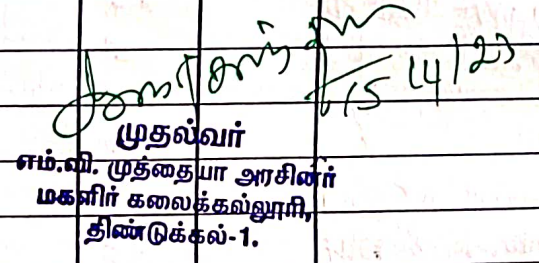 15/4/23
முதல்வர்
எம்.வி. முத்தையா அரசினர்
மகளிர் கலைக்கல்லூரி,
திண்டுக்கல்-1.